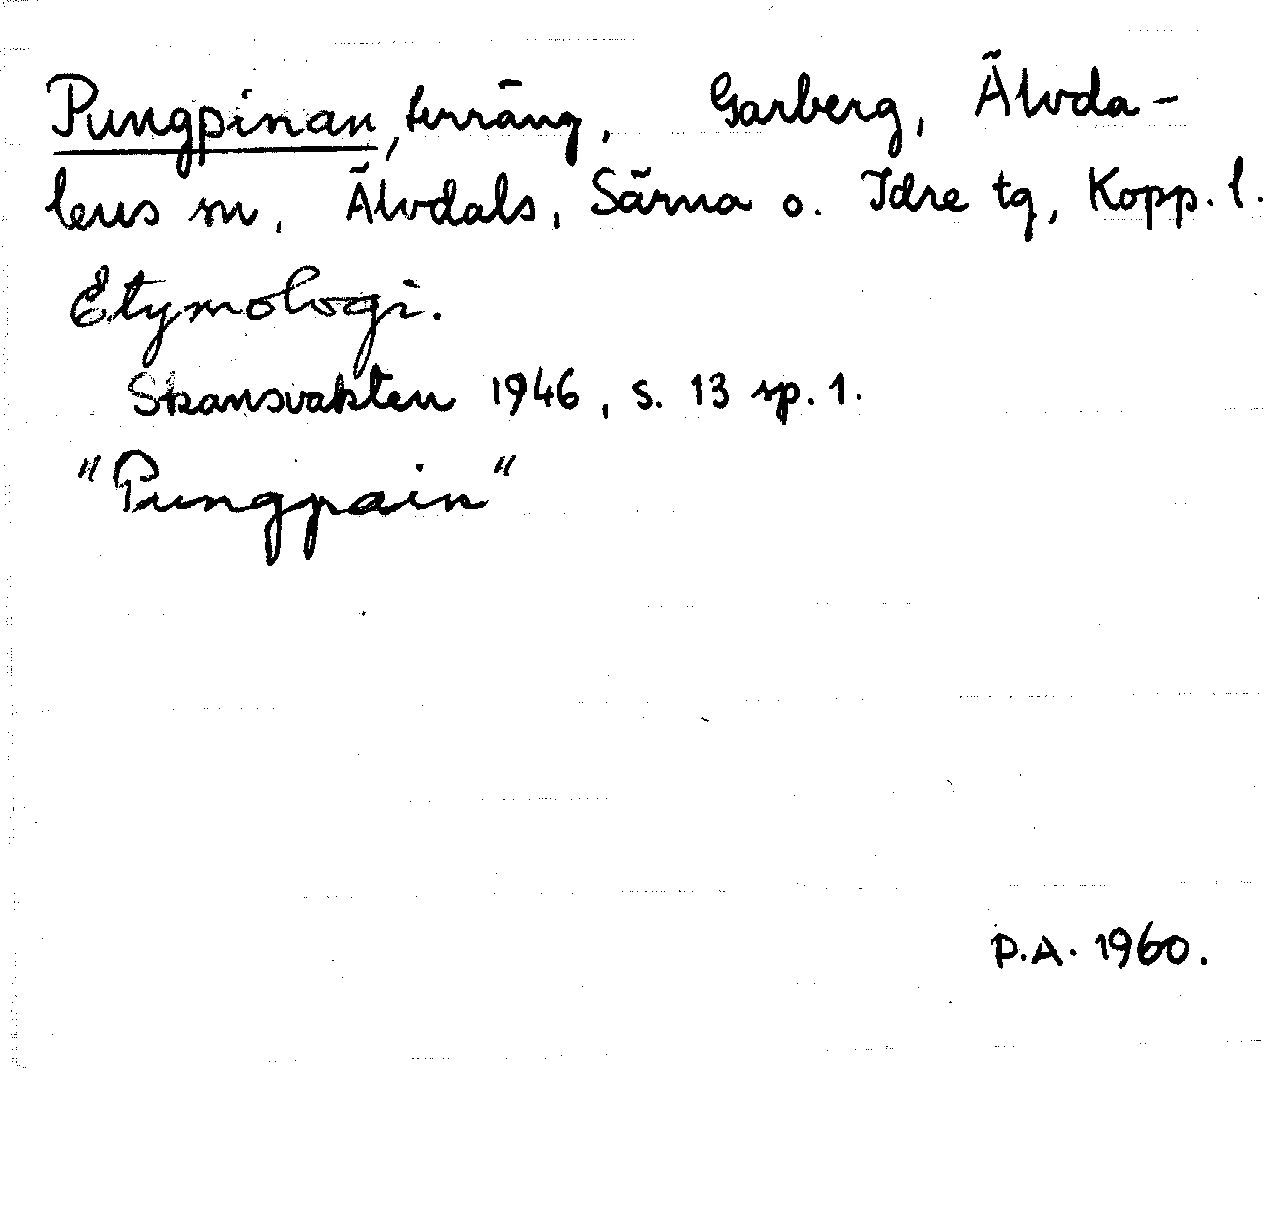 Pungpinan, terräng, Garberg, Älvda-
lens sn, Älvdals, Särna o. Idre tg, Kopp. l.
Etymologi.
Skansvakten 1946, s. 13 sp. 1.
"Pungpain"
P.A. 1960.